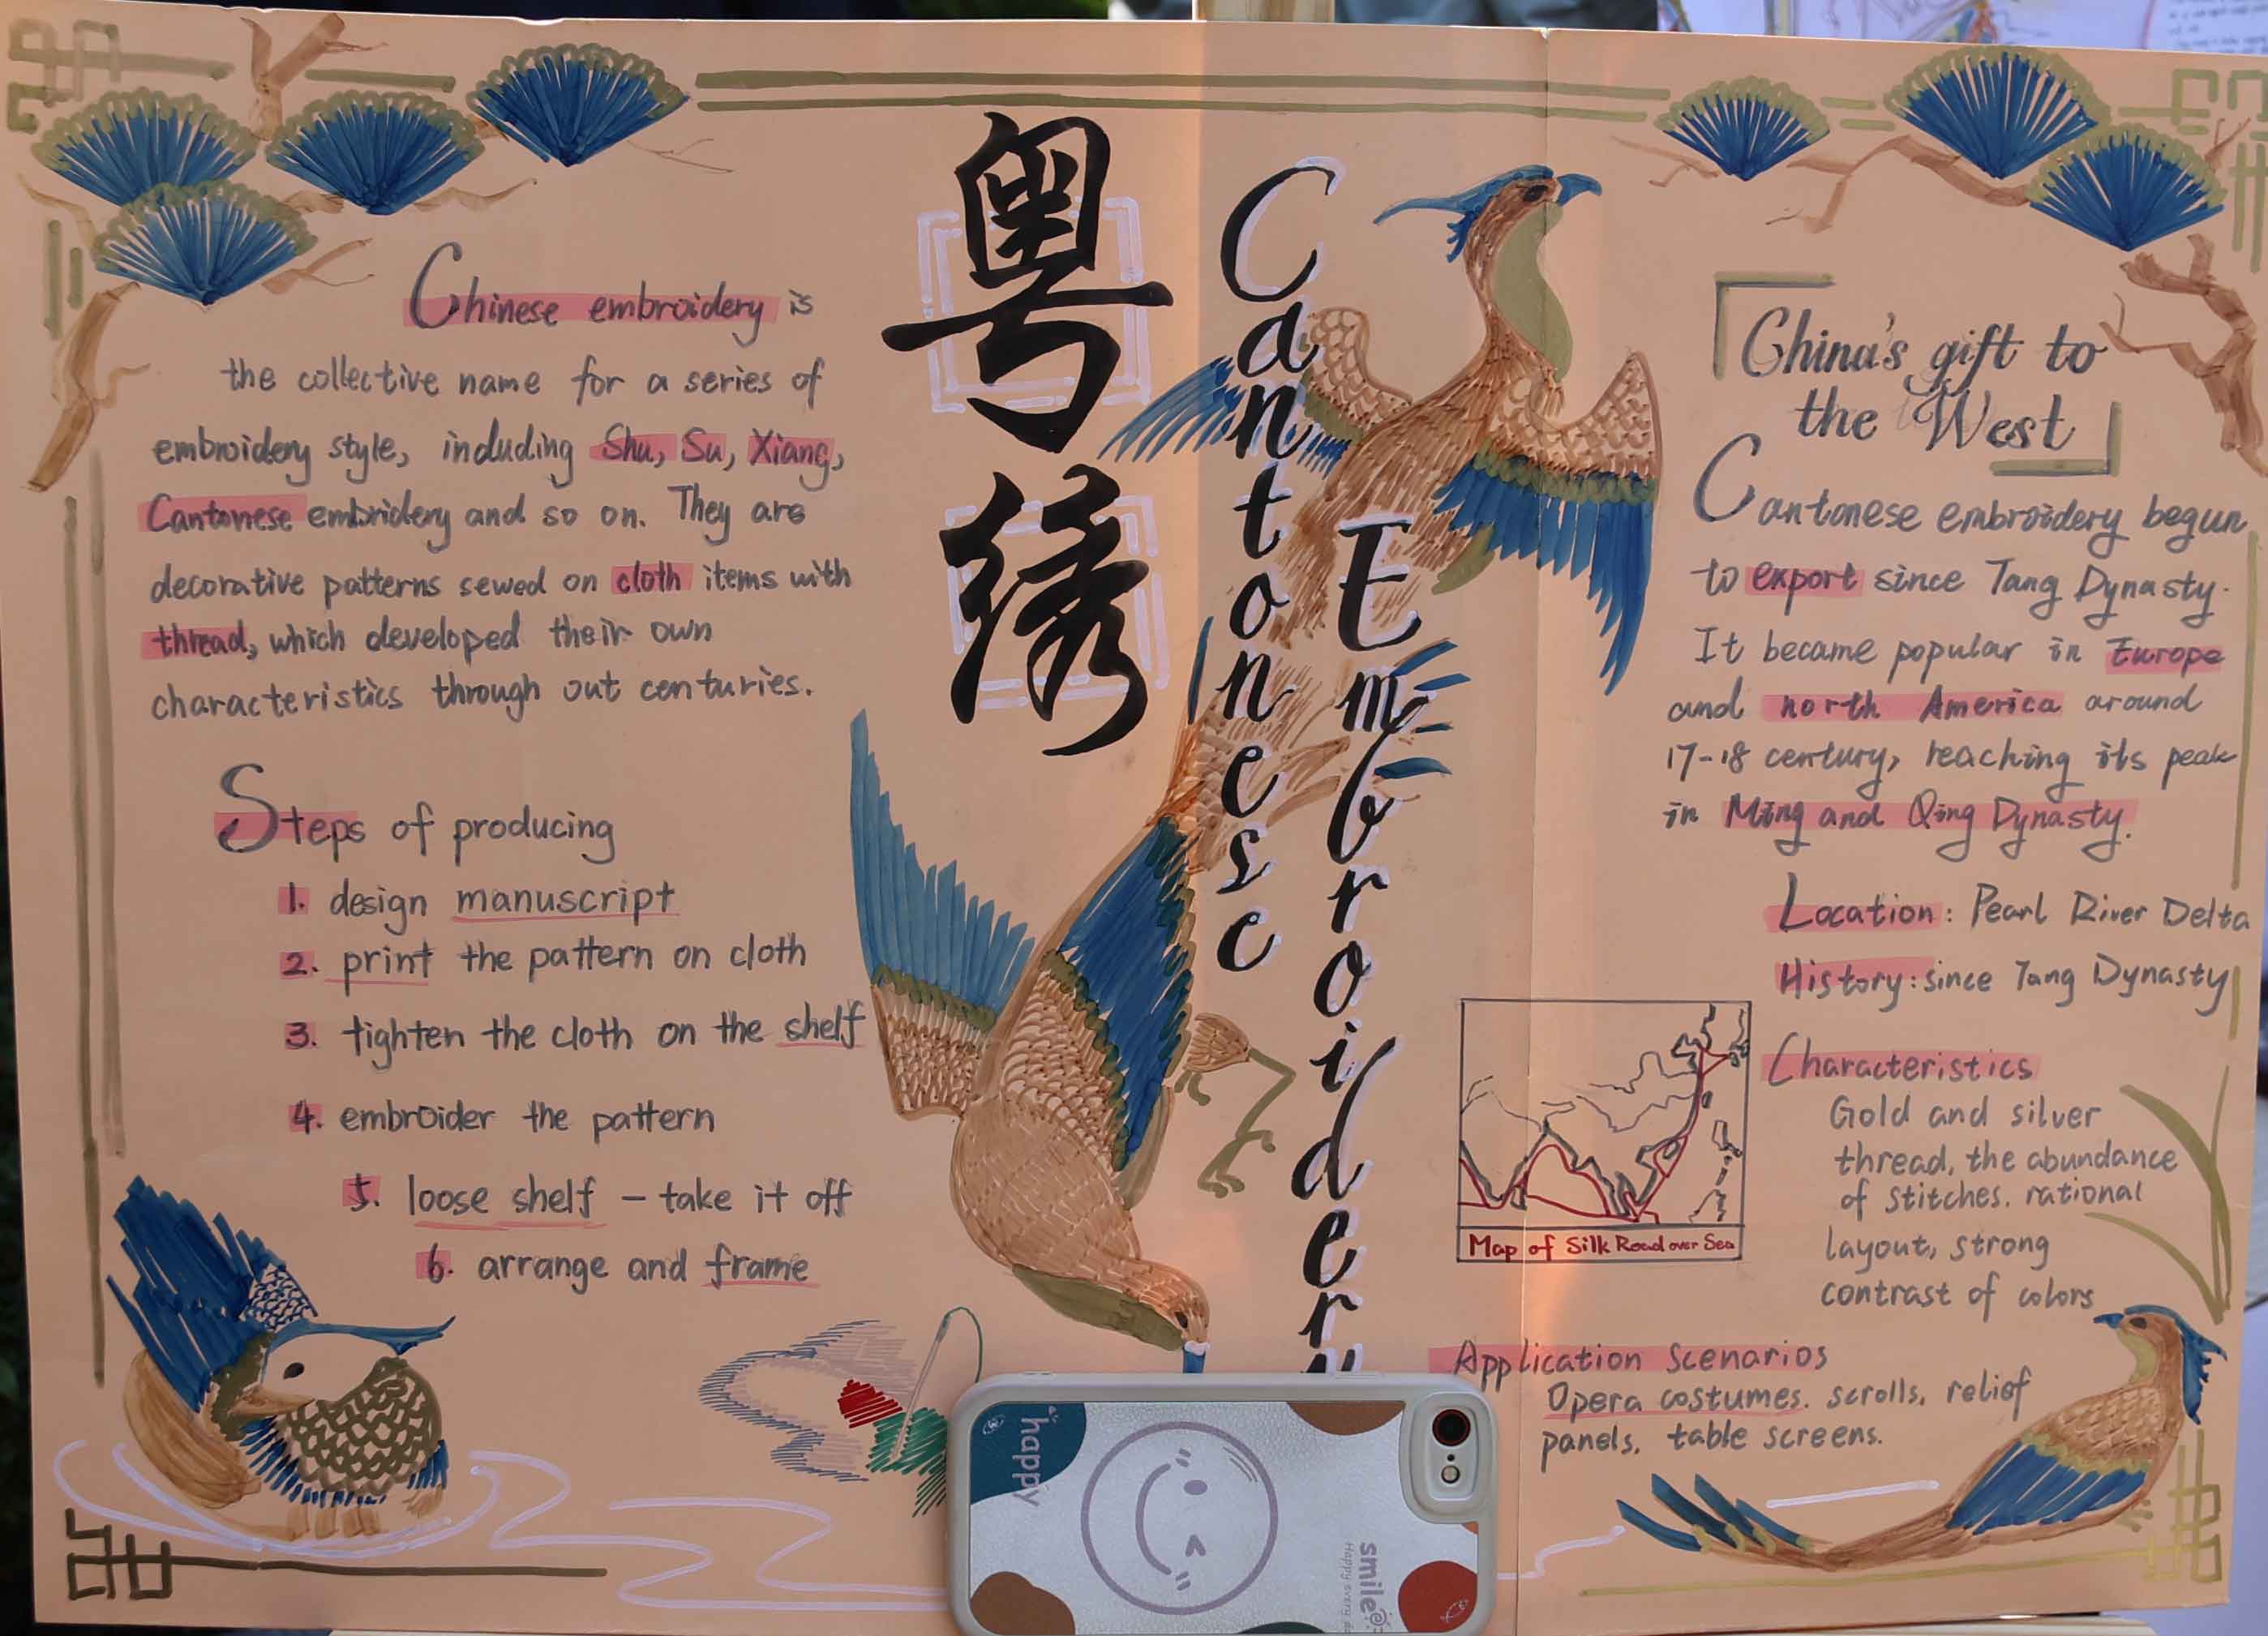 Chinese embroidery is
the collective name for a series of
embroidery style, including Shu, Su, Xiang,
Cantonese embridery and so on. They are
decorative patterns sewed on cloth items with
thread, which developed their own
characteristics through out centuries.
Steps of producing
1. design manuscript
2. print the pattern on cloth
3. tighten the cloth on the shelf
4. embroider the pattern
5. loose shelf - take it off
6. arrange and frame
粤绣
Cantonese
Embroidery
「China's gift to
the West」
Cantonese embroidery begun
to export since Tang Dynasty.
It became popular in Europe
and north America around
17-18 century, reaching its peak
in Ming and Qing Dynasty.
Location: Pearl River Delta
History: since Tang Dynasty
Characteristics
Gold and silver
thread, the abundance
of stitches. rational
layout, strong
contrast of colors
Map of Silk Road over Sea
Application Scenarios
Opera costumes. scrolls. relief
panels. table screens.
happy
smile